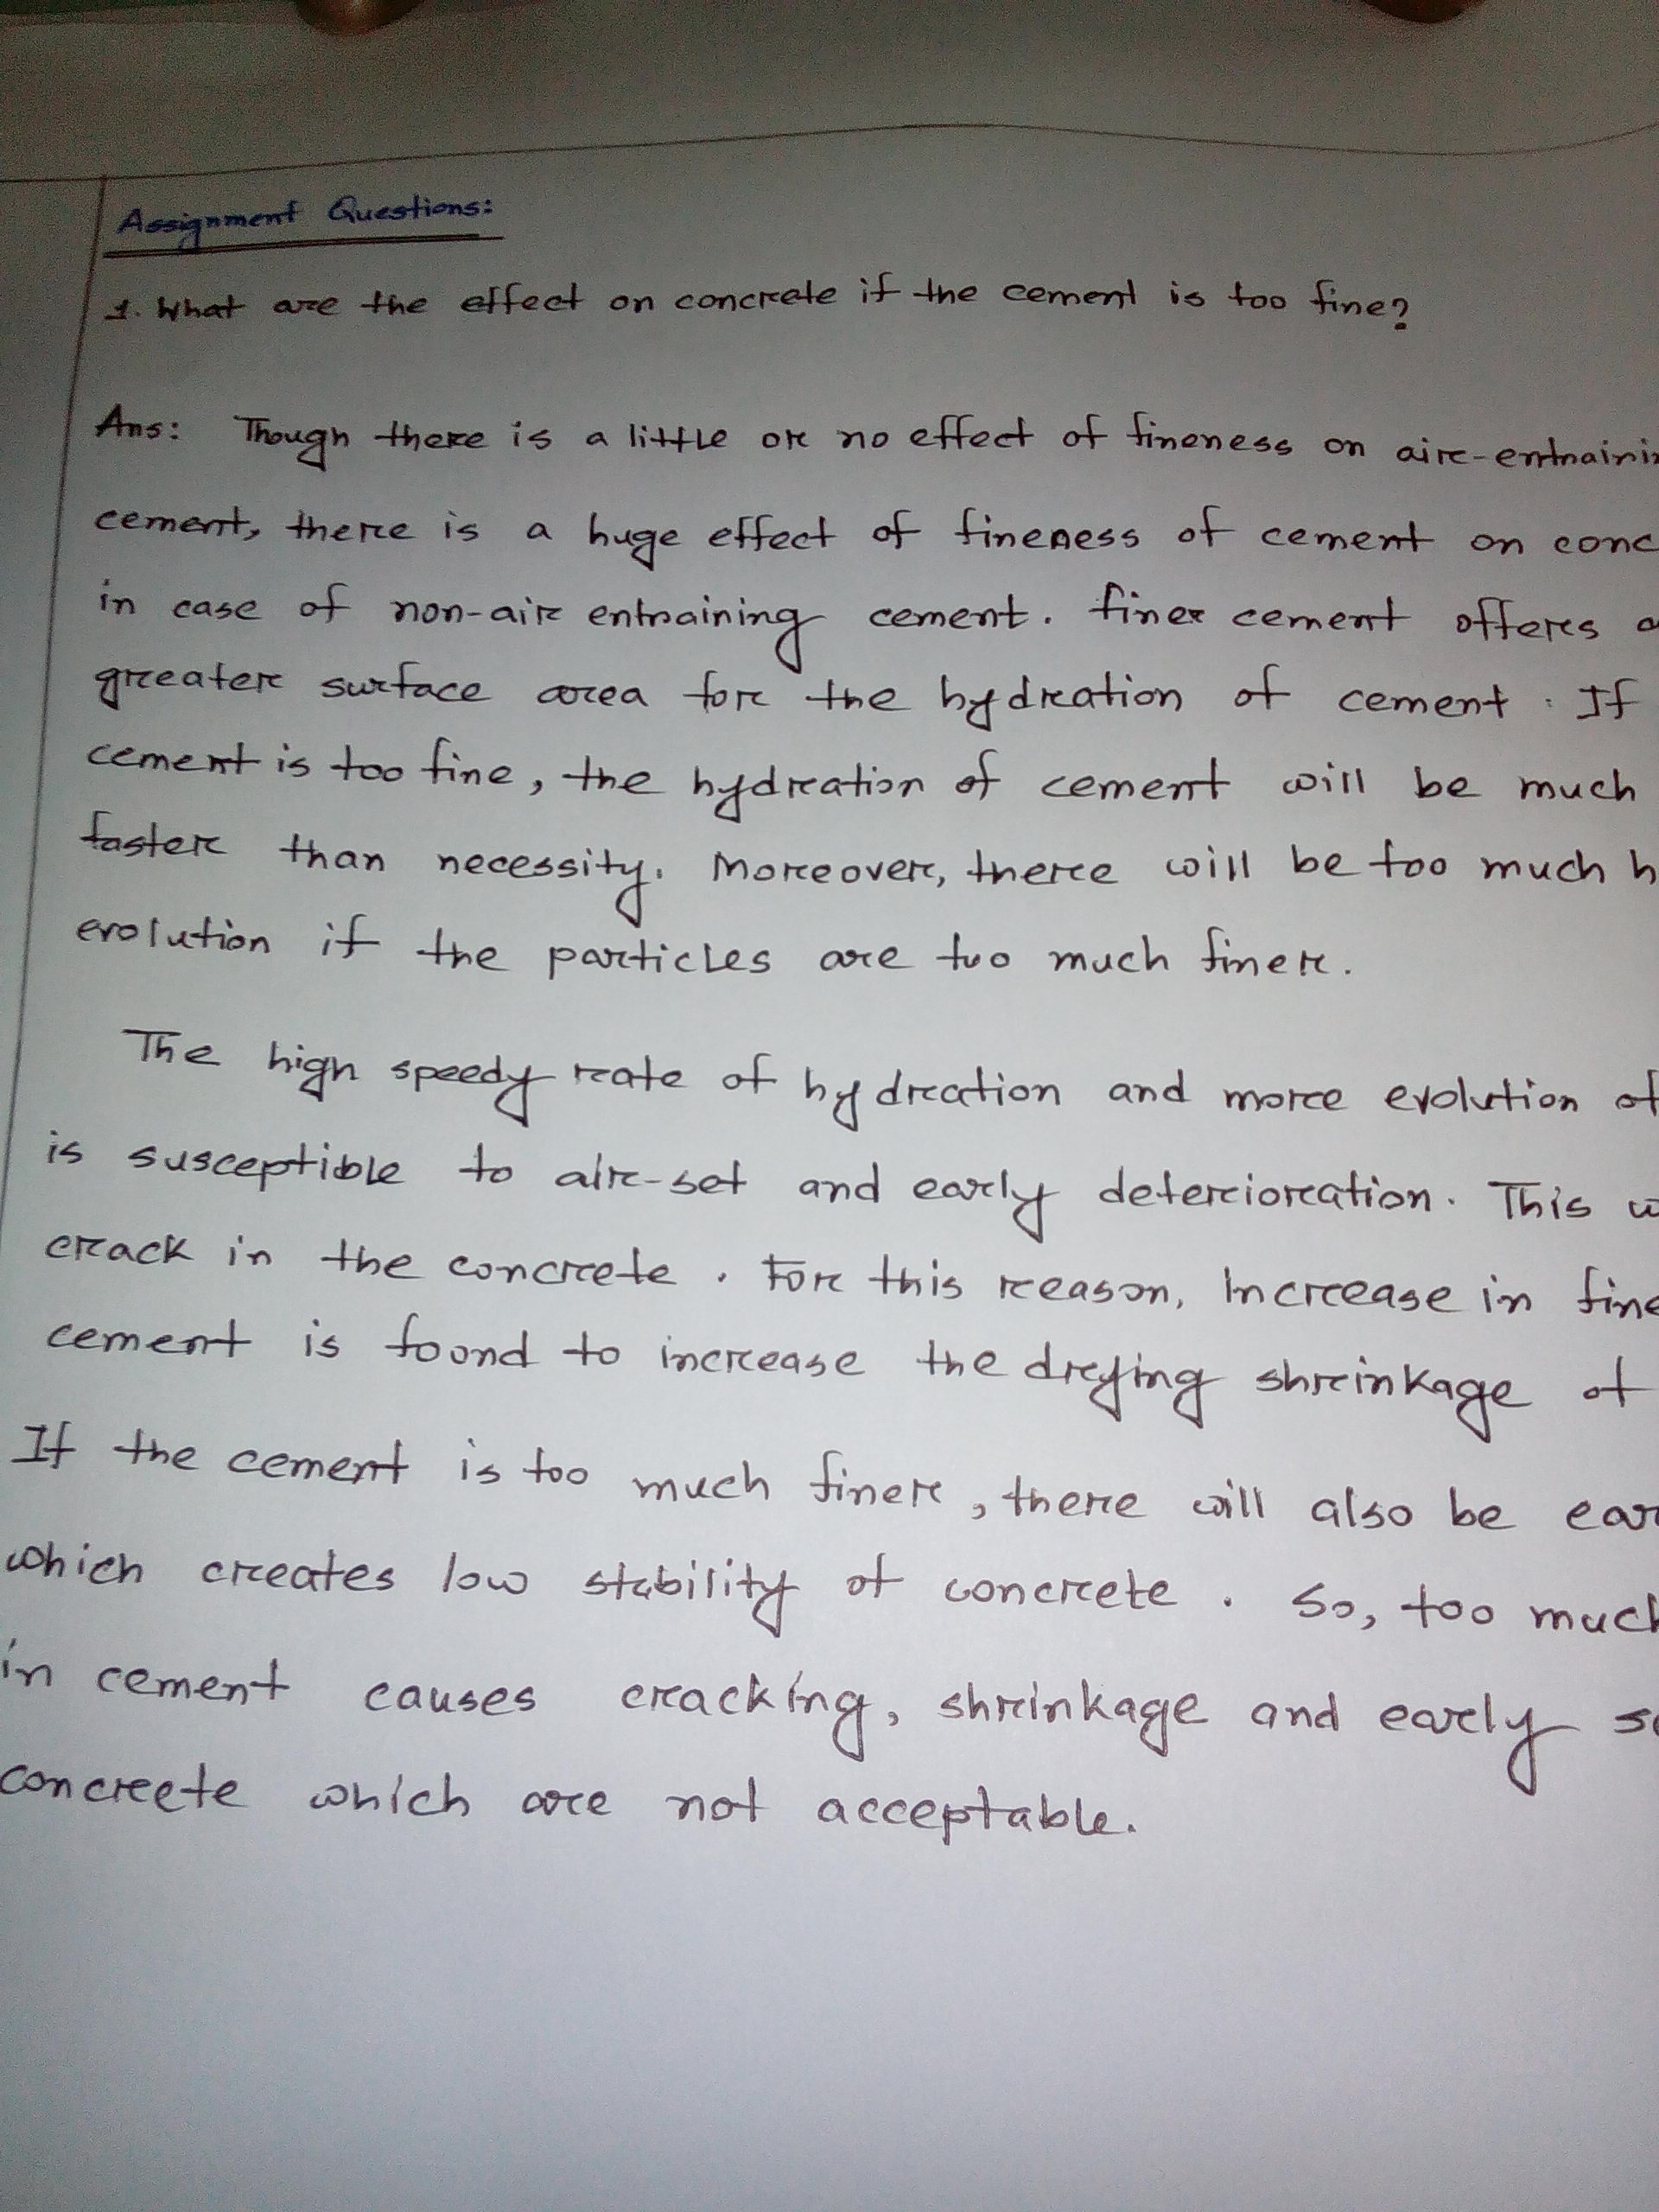 Assignment Questions:
1. What are the effect on concrete if the cement is too fine?
Ans: Though there is a little or no effect of fineness on air-entraini
cement, there is a huge effect of fineness of cement on conc
in case of non-air entraining cement. Finer cement offers a
greater surface area for the hydration of cement. If
cement is too fine, the hydration of cement will be much
faster than necessity. Moreover, there will be too much h
evolution if the particles are too much finer.
The high speedy rate of hydration and more evolution of
is susceptible to air-set and early deterioration. This w
crack in the concrete. For this reason, increase in fine
cement is found to increase the drying shrinkage of
If the cement is too much finer, there will also be ear
which creates low stability of concrete. So, too much
in cement causes cracking, shrinkage and early se
concrete which are not acceptable.